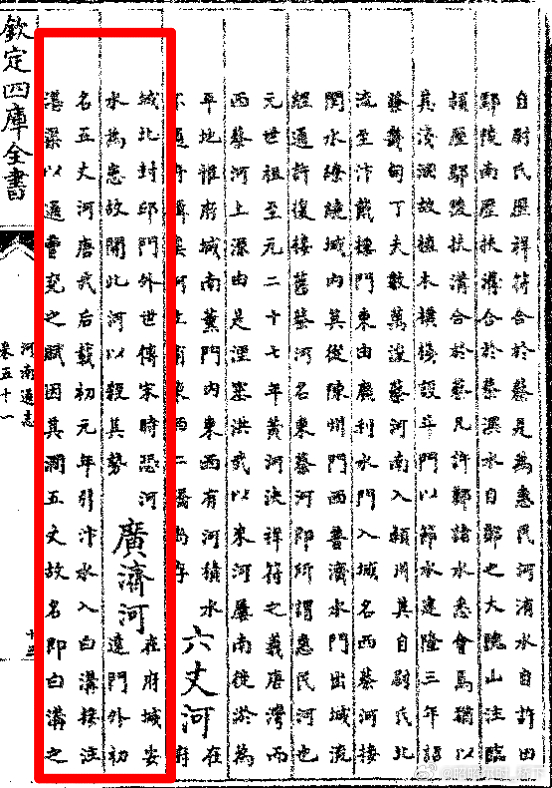 自尉氏歷祥符合於蔡是為惠民河洧水自許田
鄢陵南歷扶溝合於蔡潩水自鄭之大隗山注臨
潁歷鄢陵扶溝合於蔡凡許鄭諸水悉會焉猶以
其淺涸故植木橫棧設斗門以節水建隆三年詔
發畿甸丁夫數萬浚蔡河南入潁川其自尉氏北
流至汴戴樓門東由廣利水門入城名西蔡河接
閔水繚繞城内莫從陳州門西普濟水門出城流
經通許復接舊蔡河名東蔡河即所謂惠民河也
元世祖至元二十七年黃河決祥符之義唐灣而
西蔡河上源由是湮塞洪武以來河屢南徙淤為
平地惟府城南薰門内東西有河積水
不通舟楫其河上有東西二橋尚存
六丈河
在
府
城北封邱門外世傳宋時恐河
水為患故開此河以殺其勢
廣濟河
在府城安
遠門外初
名五丈河唐武后載初元年引汴水入白溝接注
湛渠以通曹兗之賦因其濶五丈故名即白溝之
欽定四庫全書
河南通志
卷五十一